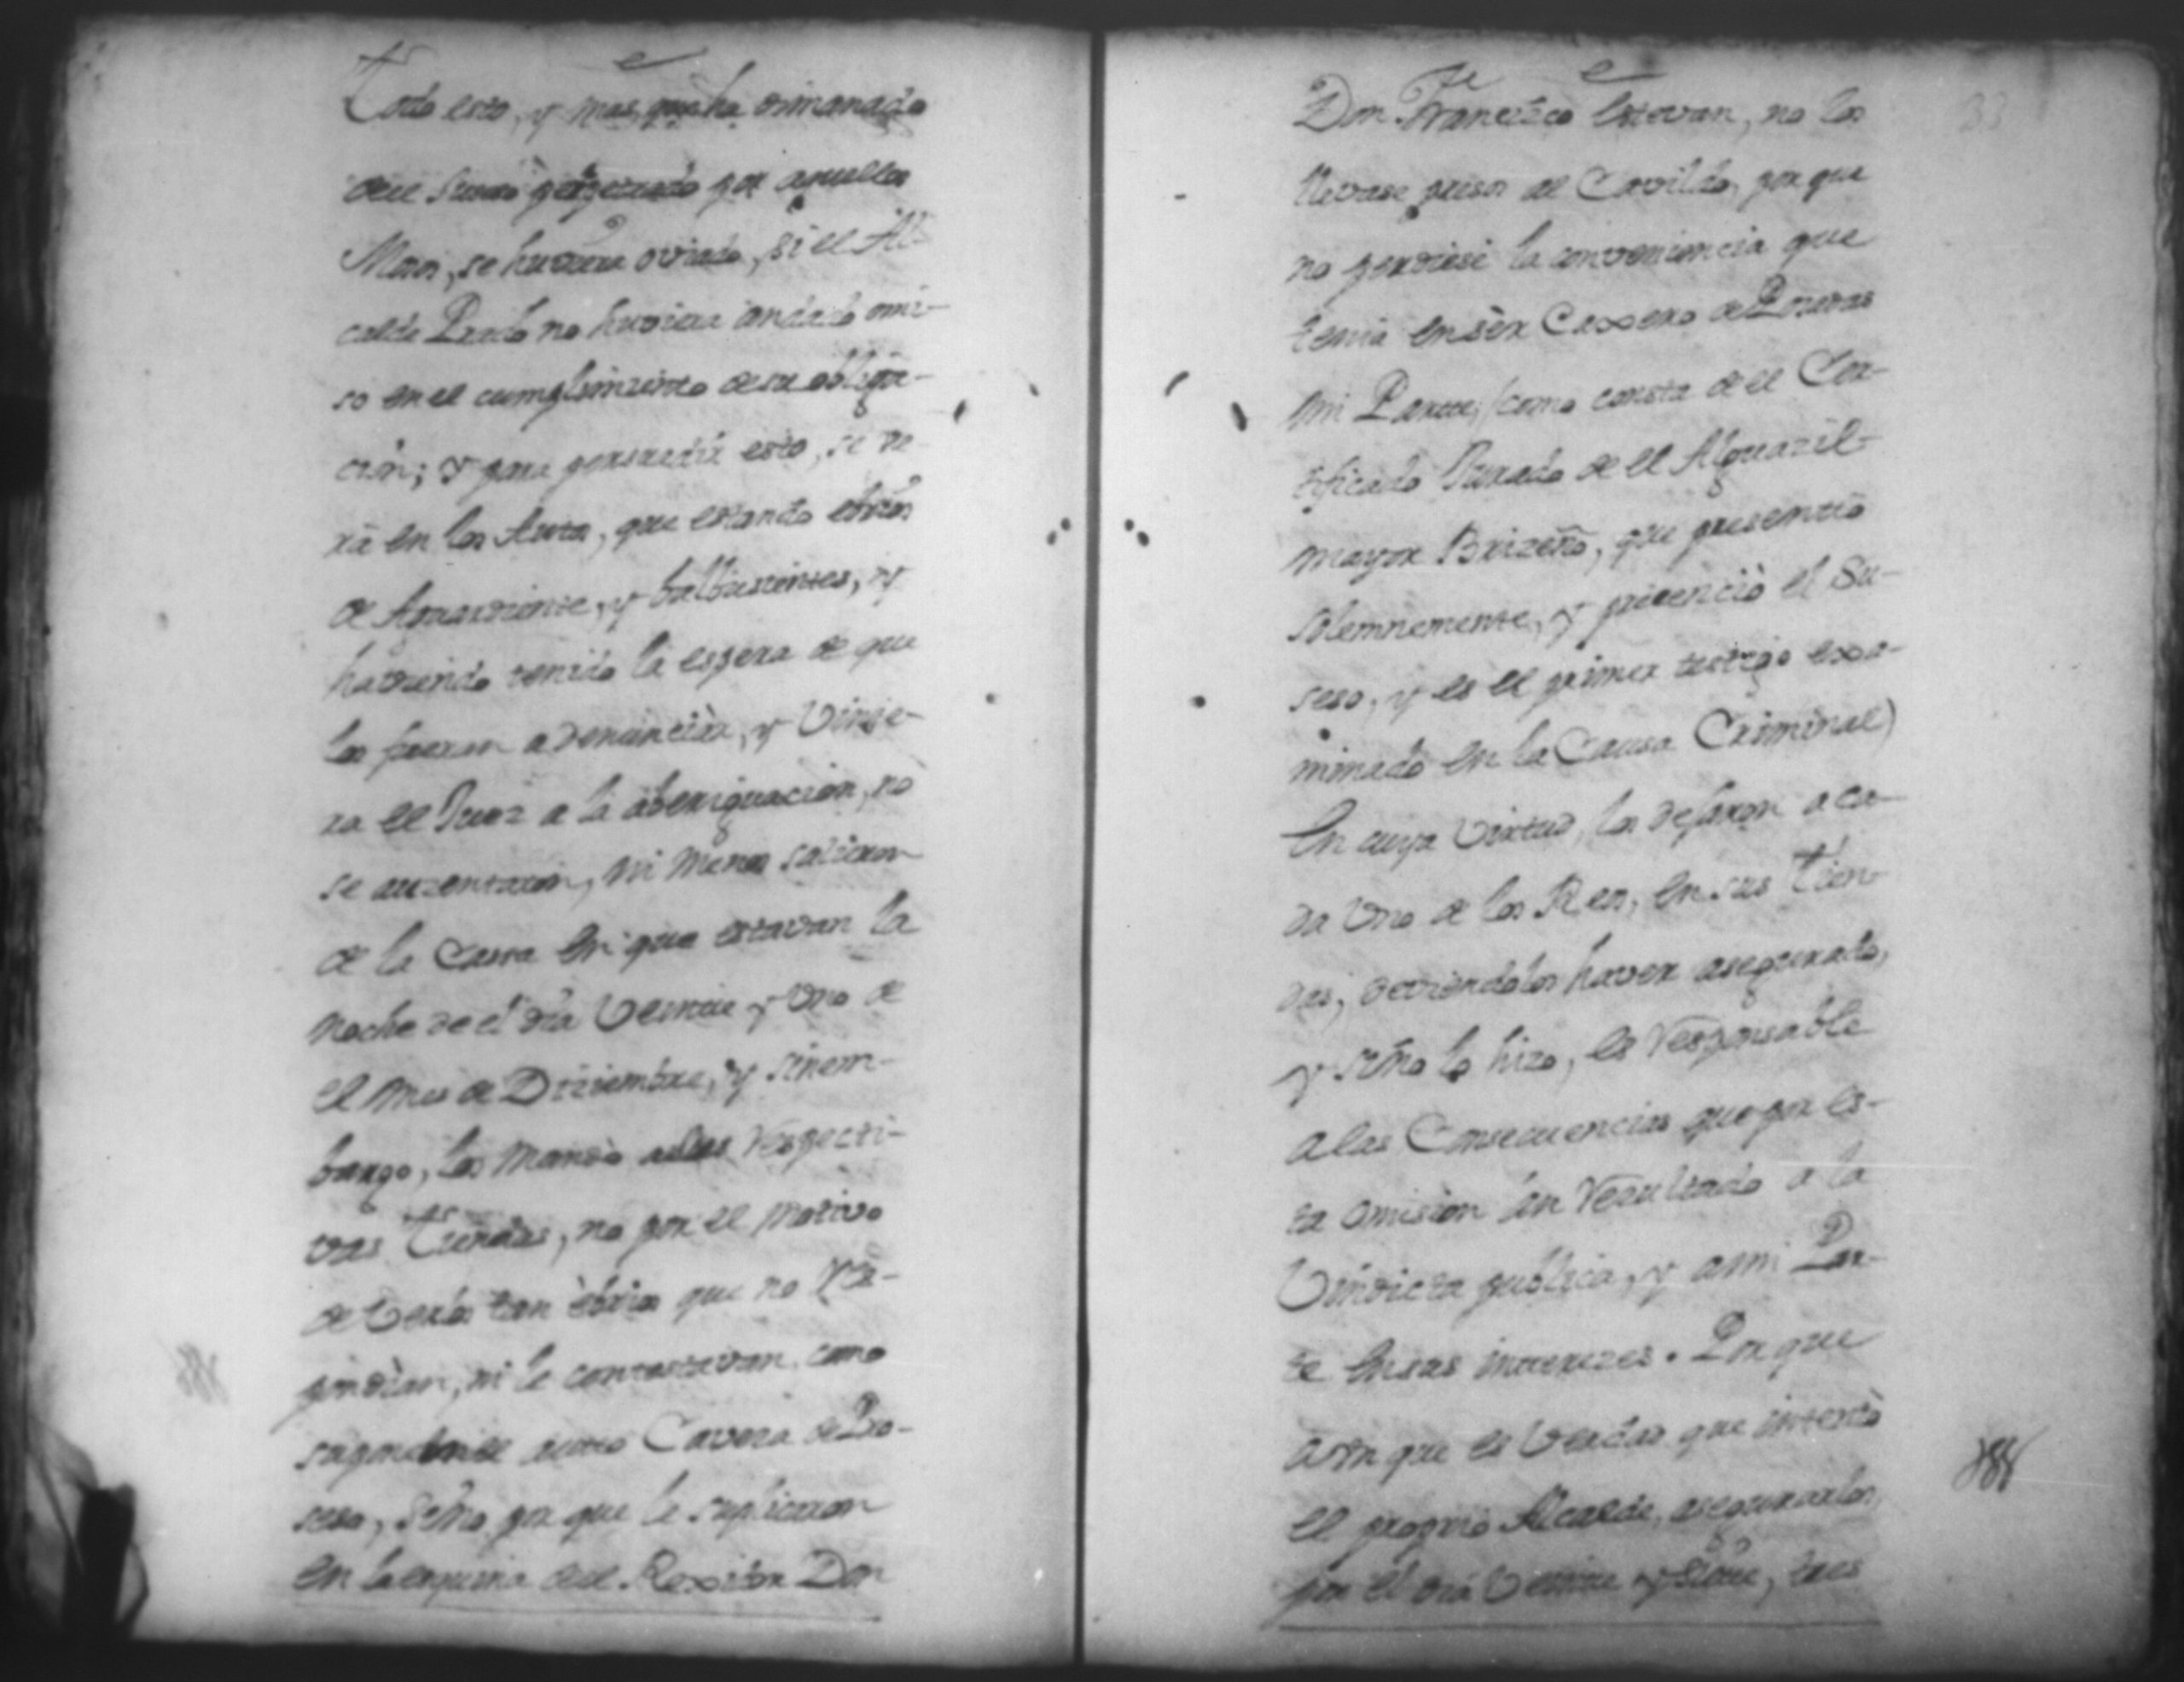 Todo esto, y mas, que ha dimanado
de el Suceso perpetrado por aquellos
Moros, se huviera oviado, si el Al-
calde Prado no huviera andado omi-
so en el cumplimiento de su obliga-
ción; y para persuadir esto, se ve-
rá en los Autos, que estando ebrios
de Aguardiente, y balbusientes, y
haviendo tenido la espera de que
los fueran a denunciàr, y Vinie-
ra el Juez a la aberiguacion, no
se auzentaron, ni menos salieron
de la Cassa en que estavan la
noche de el dia Veinte y Uno de
el mes de Diziembre, y sinem-
bargo, los mandò a sus respecti-
vas Tiendas, no por el motivo
de Verlos tan èbrios que no res-
pondian, ni le contestavan, como
supone en el auto Cavesa de Pro-
seso, Sino por que le suplicaron
en la esquina de el Rexidor Don
Don Francisco Estevan, no los
llevase presos al Cavildo, por que
no perdiese la conveniencia que
tenia en sèr Caxero de
mi Parte, (como consta de el Cer-
tificado Jurado de el Alguazil
mayor Brizeño, que presentto
solemnemente, y presenciò el Su-
seso, y es el primer testigo exa-
minado en la Causa Criminal)
En cuya Virtud, los dejaron a ca-
da Uno de los Reos, en sus Tien-
das, deviendolos haver asegurado,
y sino lo hizo, es responsable
a las Consecuencias que por es-
ta omision àn resultado a la
Vindicta publica, y a mi Par-
te en sus interezes. Por que
aunque es Verdad que intentò
el proprio Alcalde, asegurarlos,
por el dia Veinte y siete, tres
33
188